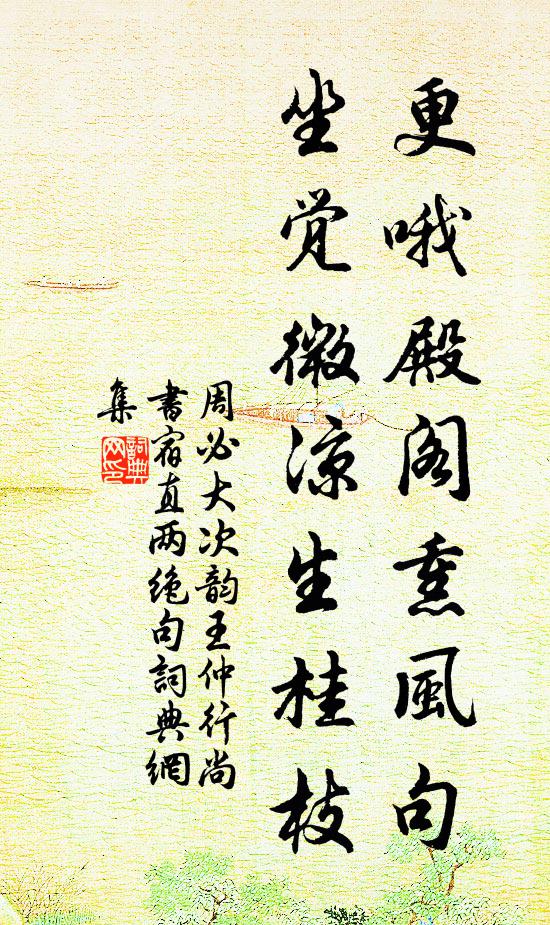 更哦殿阁熏風句
坐觉微凉生桂枝
周必大次韵王仲行尚
書宿直两绝句詞典網
集
詞典网印